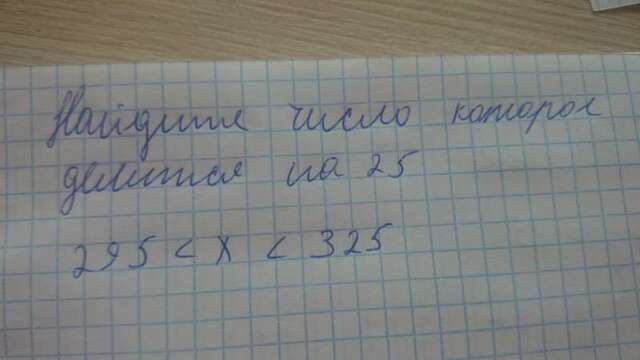 Найдите число которое
делится на 25
295 < x < 325